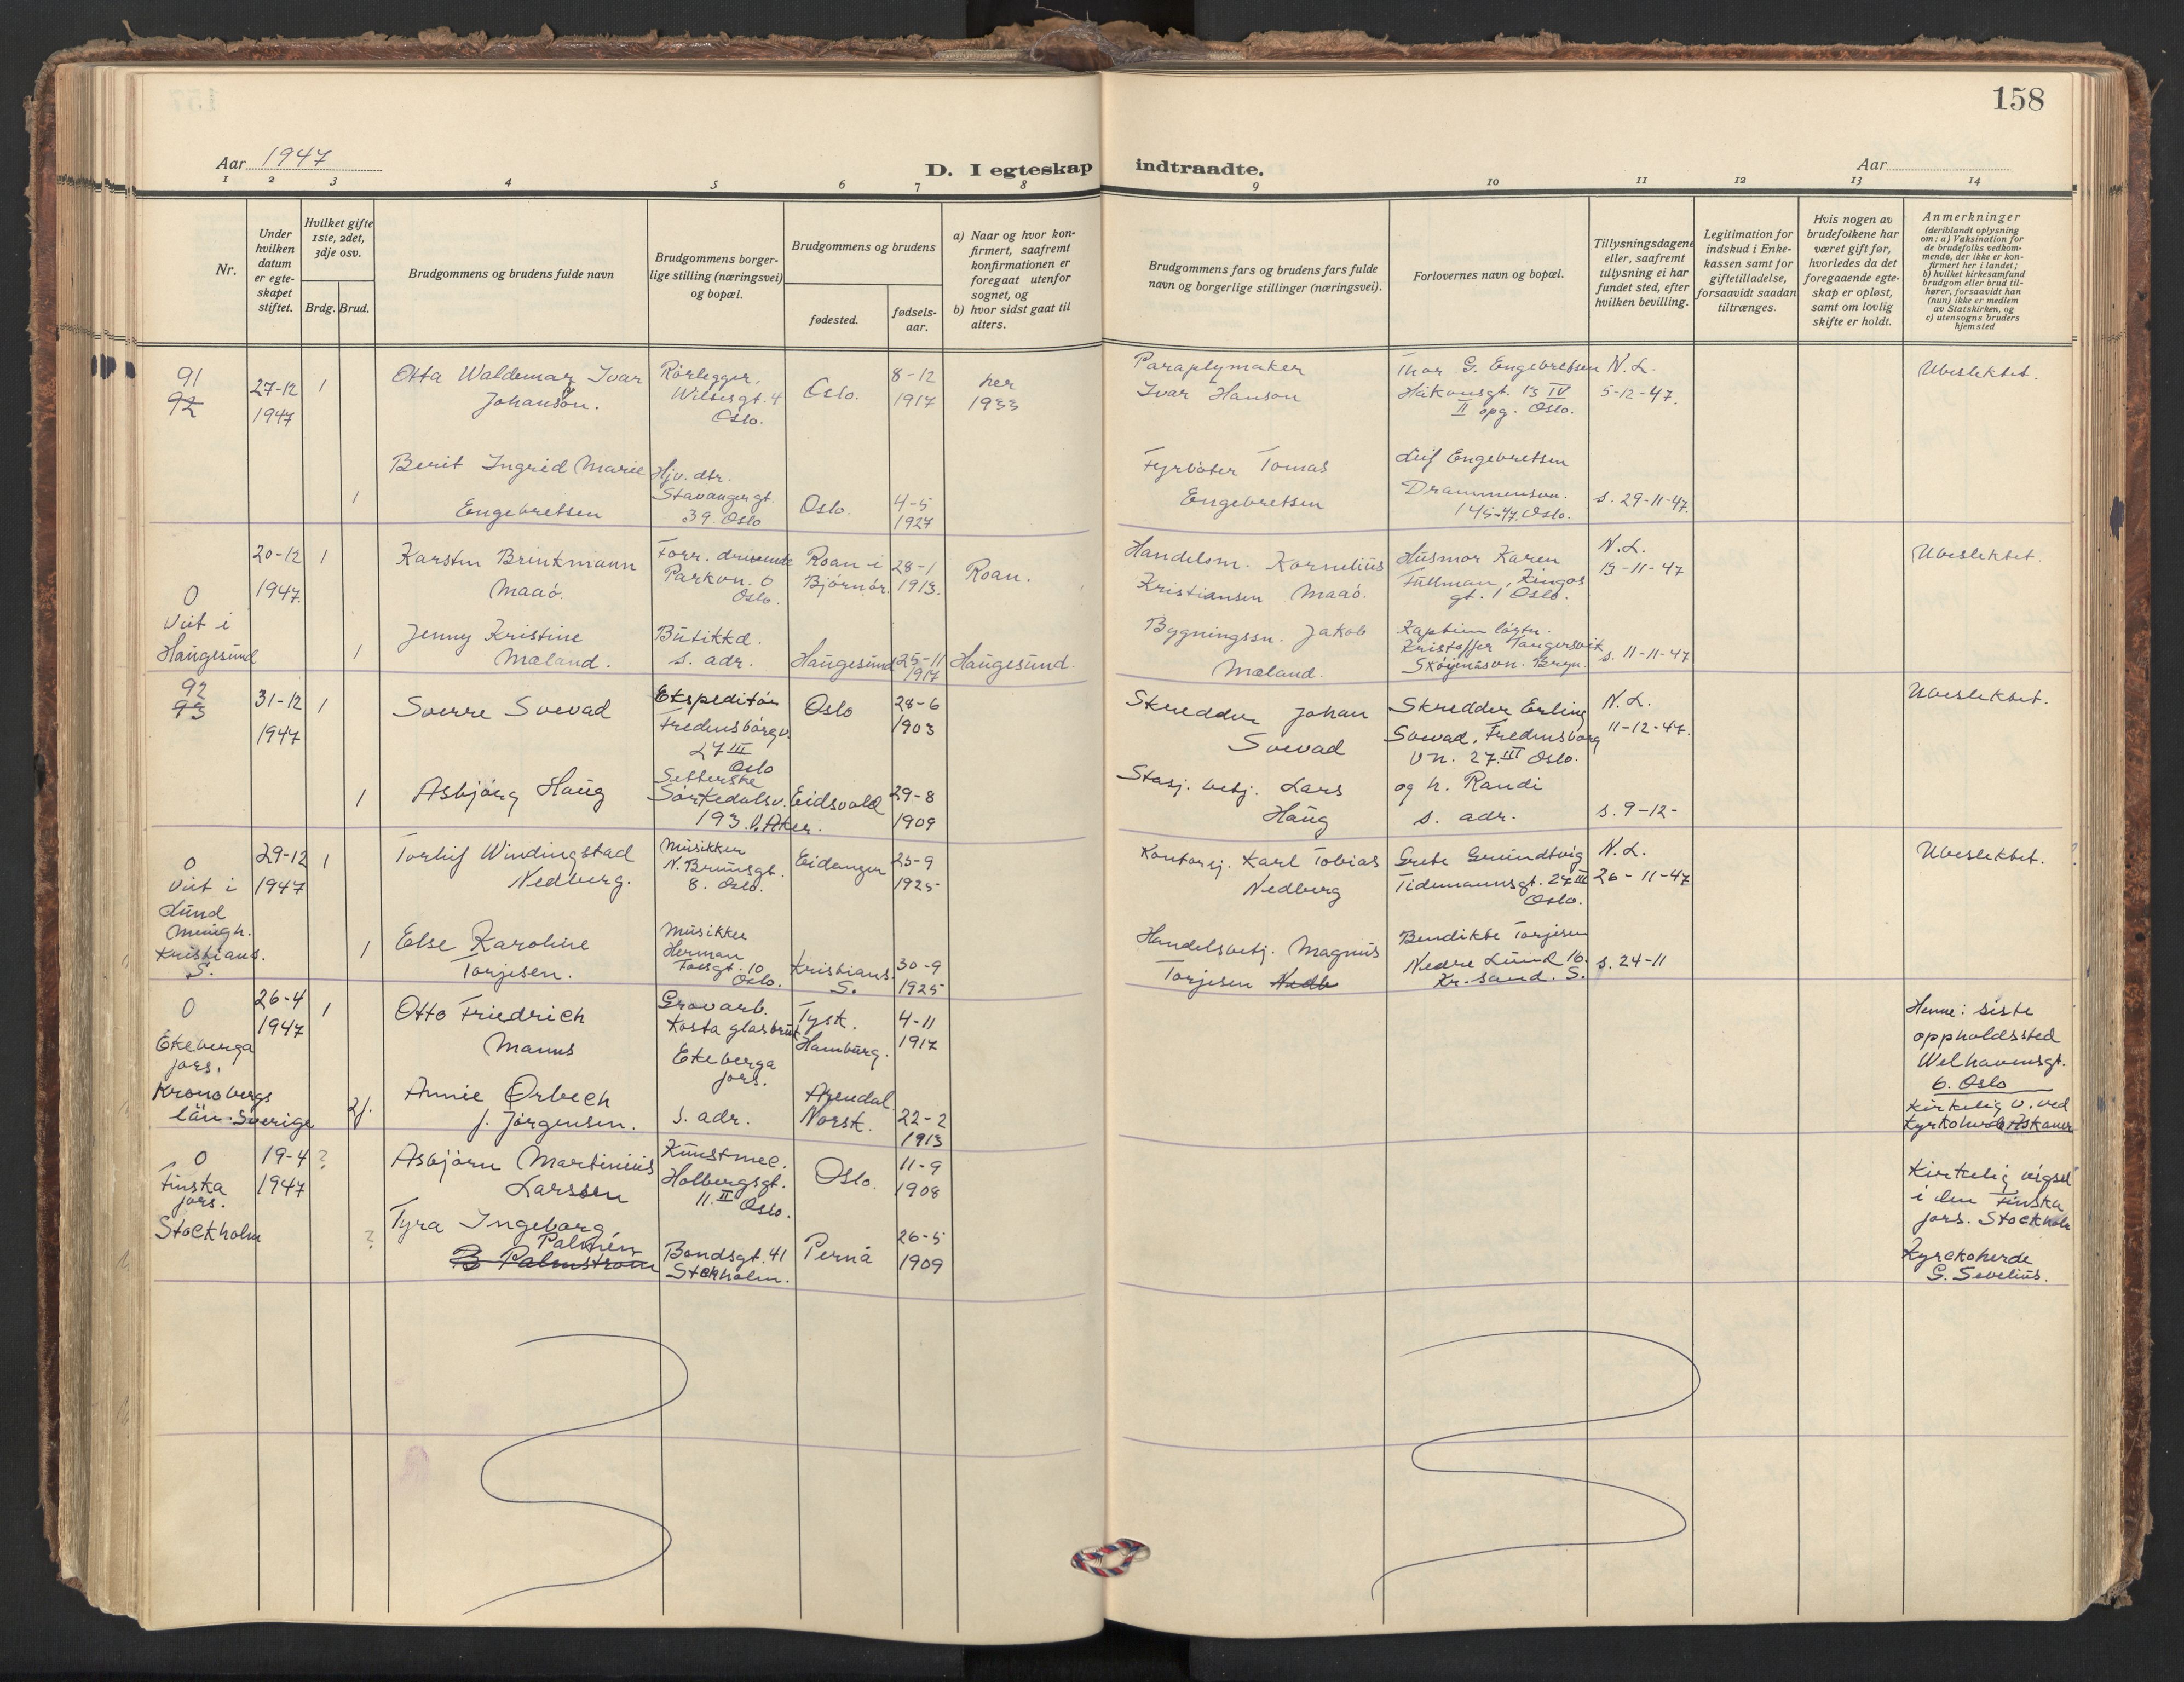 158
Aar 1947
D. I egteskap indtraadte.
Aar
1 2 3 4 5 6 7 8 9 10 11 12 13 14
Nr.
Under hvilken datum er egte-skapet stiftet.
Hvilket gifte 1ste, 2det, 3dje osv.
Brdg. Brud.
Brudgommens og brudens fulde navn
Brudgommens borger-lige stilling (næringsvei) og bopæl.
Brudgommens og brudens
fødested.
fødsels-aar.
a) Naar og hvor kon-firmert, saafremt konfirmationen er foregaat utenfor sognet, og
b) hvor sidst gaat til alters.
Brudgommens fars og brudens fars fulde navn og borgerlige stillinger (næringsvei).
Forlovernes navn og bopæl.
Tillysningsdagene eller, saafremt tillysning ei har fundet sted, efter hvilken bevilling.
Legitimation for indskud i Enke-kassen samt for giftetilladelse, forsaavidt saadan tiltrænges.
Hvis nogen av brudefolkene har været gift før, hvorledes da det foregaaende egte-skap er opløst, samt om lovlig skifte er holdt.
Anmerkninger
(deriblandt oplysning om: a) Vaksination for de brudefolks vedkom-mende, der ikke er kon-firmert her i landet; b) hvilket kirkesamfund brudgom eller brud til-hører, forsaavidt han (hun) ikke er medlem av Statskirken, og c) utensogns bruders hjemsted
91
92
27-12
1947
1
Otta Waldemar Ivar
Johanson.
Rørlegger,
Wilsesgt. 4
Oslo.
Oslo.
8-12
1917
her
1933
Paraplymaker
Ivar Hanson
Thor G. Engebretsen
Håkonsgt. 13 IV
II opg. Oslo.
N.L.
5-12-47.
Ubeslektet.
1
Berit Ingrid Marie
Engebretsen
Hjv. dtr.
Stavangergt.
39. Oslo
Oslo.
4-5
1927
Fyrbøter Tomas
Engebretsen
Leif Engebretsen
Drammensvn.
145-47. Oslo.
s. 29-11-47.
0
Viet i
Haugesund
20-12
1947.
1
Karsten Brinkmann
Maaø.
Forr. drivende
Parkvn. 6
Oslo.
Roan i
Bjørnør.
28-1
1913.
Roan.
Handelsm. Kornelius
Kristiansen Maaø.
Husmor Karen
Fullman, Zingos
gt. 1 Oslo.
N.L.
13-11-47
Ubeslektet.
1
Jenny Kristine
Mæland.
Butikkd.
s. adr.
Haugesund
25-11
1917
Haugesund.
Bygningssn. Jakob
Mæland.
Kaptein løytn.
Kristoffer Tangersvik
Skøyenåsvn. Bryn.
s. 11-11-47
92
93
31-12
1947
1
Sverre Svevad
Ekspeditør
Fredensborgv.
27 III
Oslo
Oslo
28-6
1903
Skredder Johan
Svevad
Skredder Erling
Svevad, Fredensborg
vn. 27. III Oslo.
N.L.
11-12-47.
Ubeslektet.
1
Asbjørg Haug
Setterske
Sørkedalsv.
193. V. Aker.
Eidsvold
29-8
1909
Stasj. betj. Lars
Haug
og h. Randi
s. adr.
s. 9-12-
0
Viet i
Lund
menigh.
Kristians.
S.
29-12
1947
1
Torleif Windingstad
Nedberg.
Musikker
N. Brunsgt.
8. Oslo.
Eidanger
25-9
1925
Kontorsj. Karl Tobias
Nedberg
Grete Grundtvig
Tidemannsgt. 27 III
Oslo.
N.L.
26-11-47
Ubeslektet.
1
Else Karoline
Torjesen.
Musikker
Herman
Fossgt. 10
Oslo.
Kristians.
S.
30-9
1925
Handelsbetj. Magnus
Torjesen Nedb
Bendikte Torjesen
Nedre Lund 16.
Kr.sand. S.
s. 24-11
0
Ekeberga
førs.
Kronobergs
län. Sverige
26-4
1947
1
Otto Friedrich
Manns
Grovarb.
Kosta glasbruk
Ekeberga
førs.
Tysk.
Hamburg.
4-11
1917
Henne: siste
oppholdssted
Welhavensgt.
6. Oslo
Kirkelig v. ved
2f.
Annie Ørbech
f. Jørgensen.
s. adr.
Arendal.
Norsk.
22-2
1913
0
Finska
førs.
Stockholm
19-4
1947
?
Asbjørn Martinius
Larssen
Kunstmee.
Holbergsgt.
11. II Oslo.
Oslo.
11-9
1908
Kirkelig vigsel
i den Finska
førs. Stockholm
Kyrkoherde
G. Sevelius.
?
Tyra Ingeborg
Palmén
B Palmstrom
Bondsgt. 41
Stockholm.
Pernå
26-5
1909